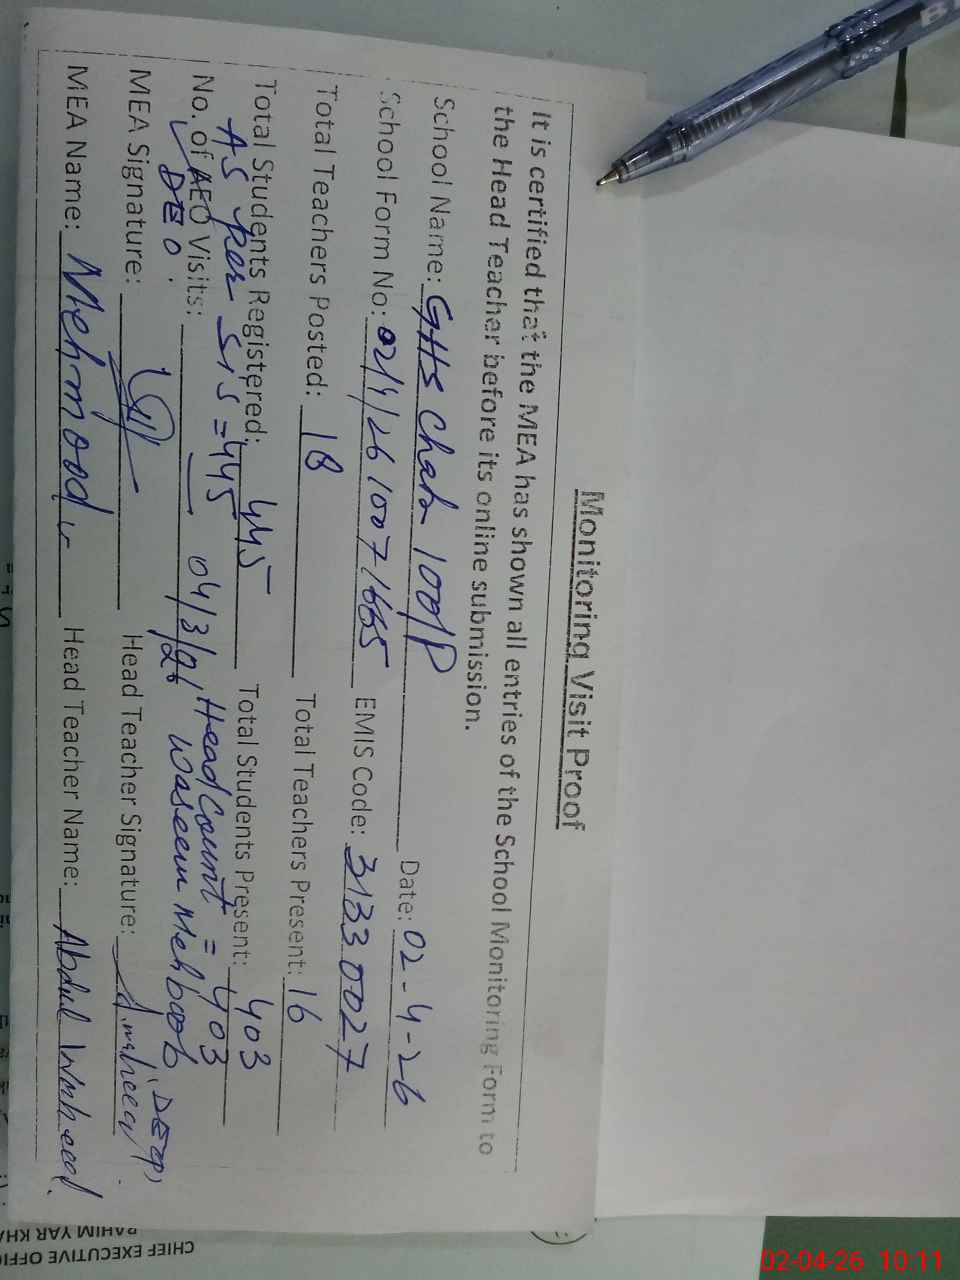 Monitoring Visit Proof
It is certified that the MEA has shown all entries of the School Monitoring Form to
the Head Teacher before its online submission.
School Name: GHS Chak 100/P Date: 02-4-26
School Form No: EMIS Code: 31330027
Total Teachers Posted: 18 Total Teachers Present: 16
Total Students Registered: 445 Total Students Present: 403
As per SIS = 445 Head Count = 403
No. of AEO Visits: 04/3/26 Waseem Mehboob
DEO
MEA Signature: Head Teacher Signature:
MEA Name: Mehmood Head Teacher Name: Abdul
CHIEF EXECUTIVE OFFI
RAHIM YAR KHA
02-04-26 10:11